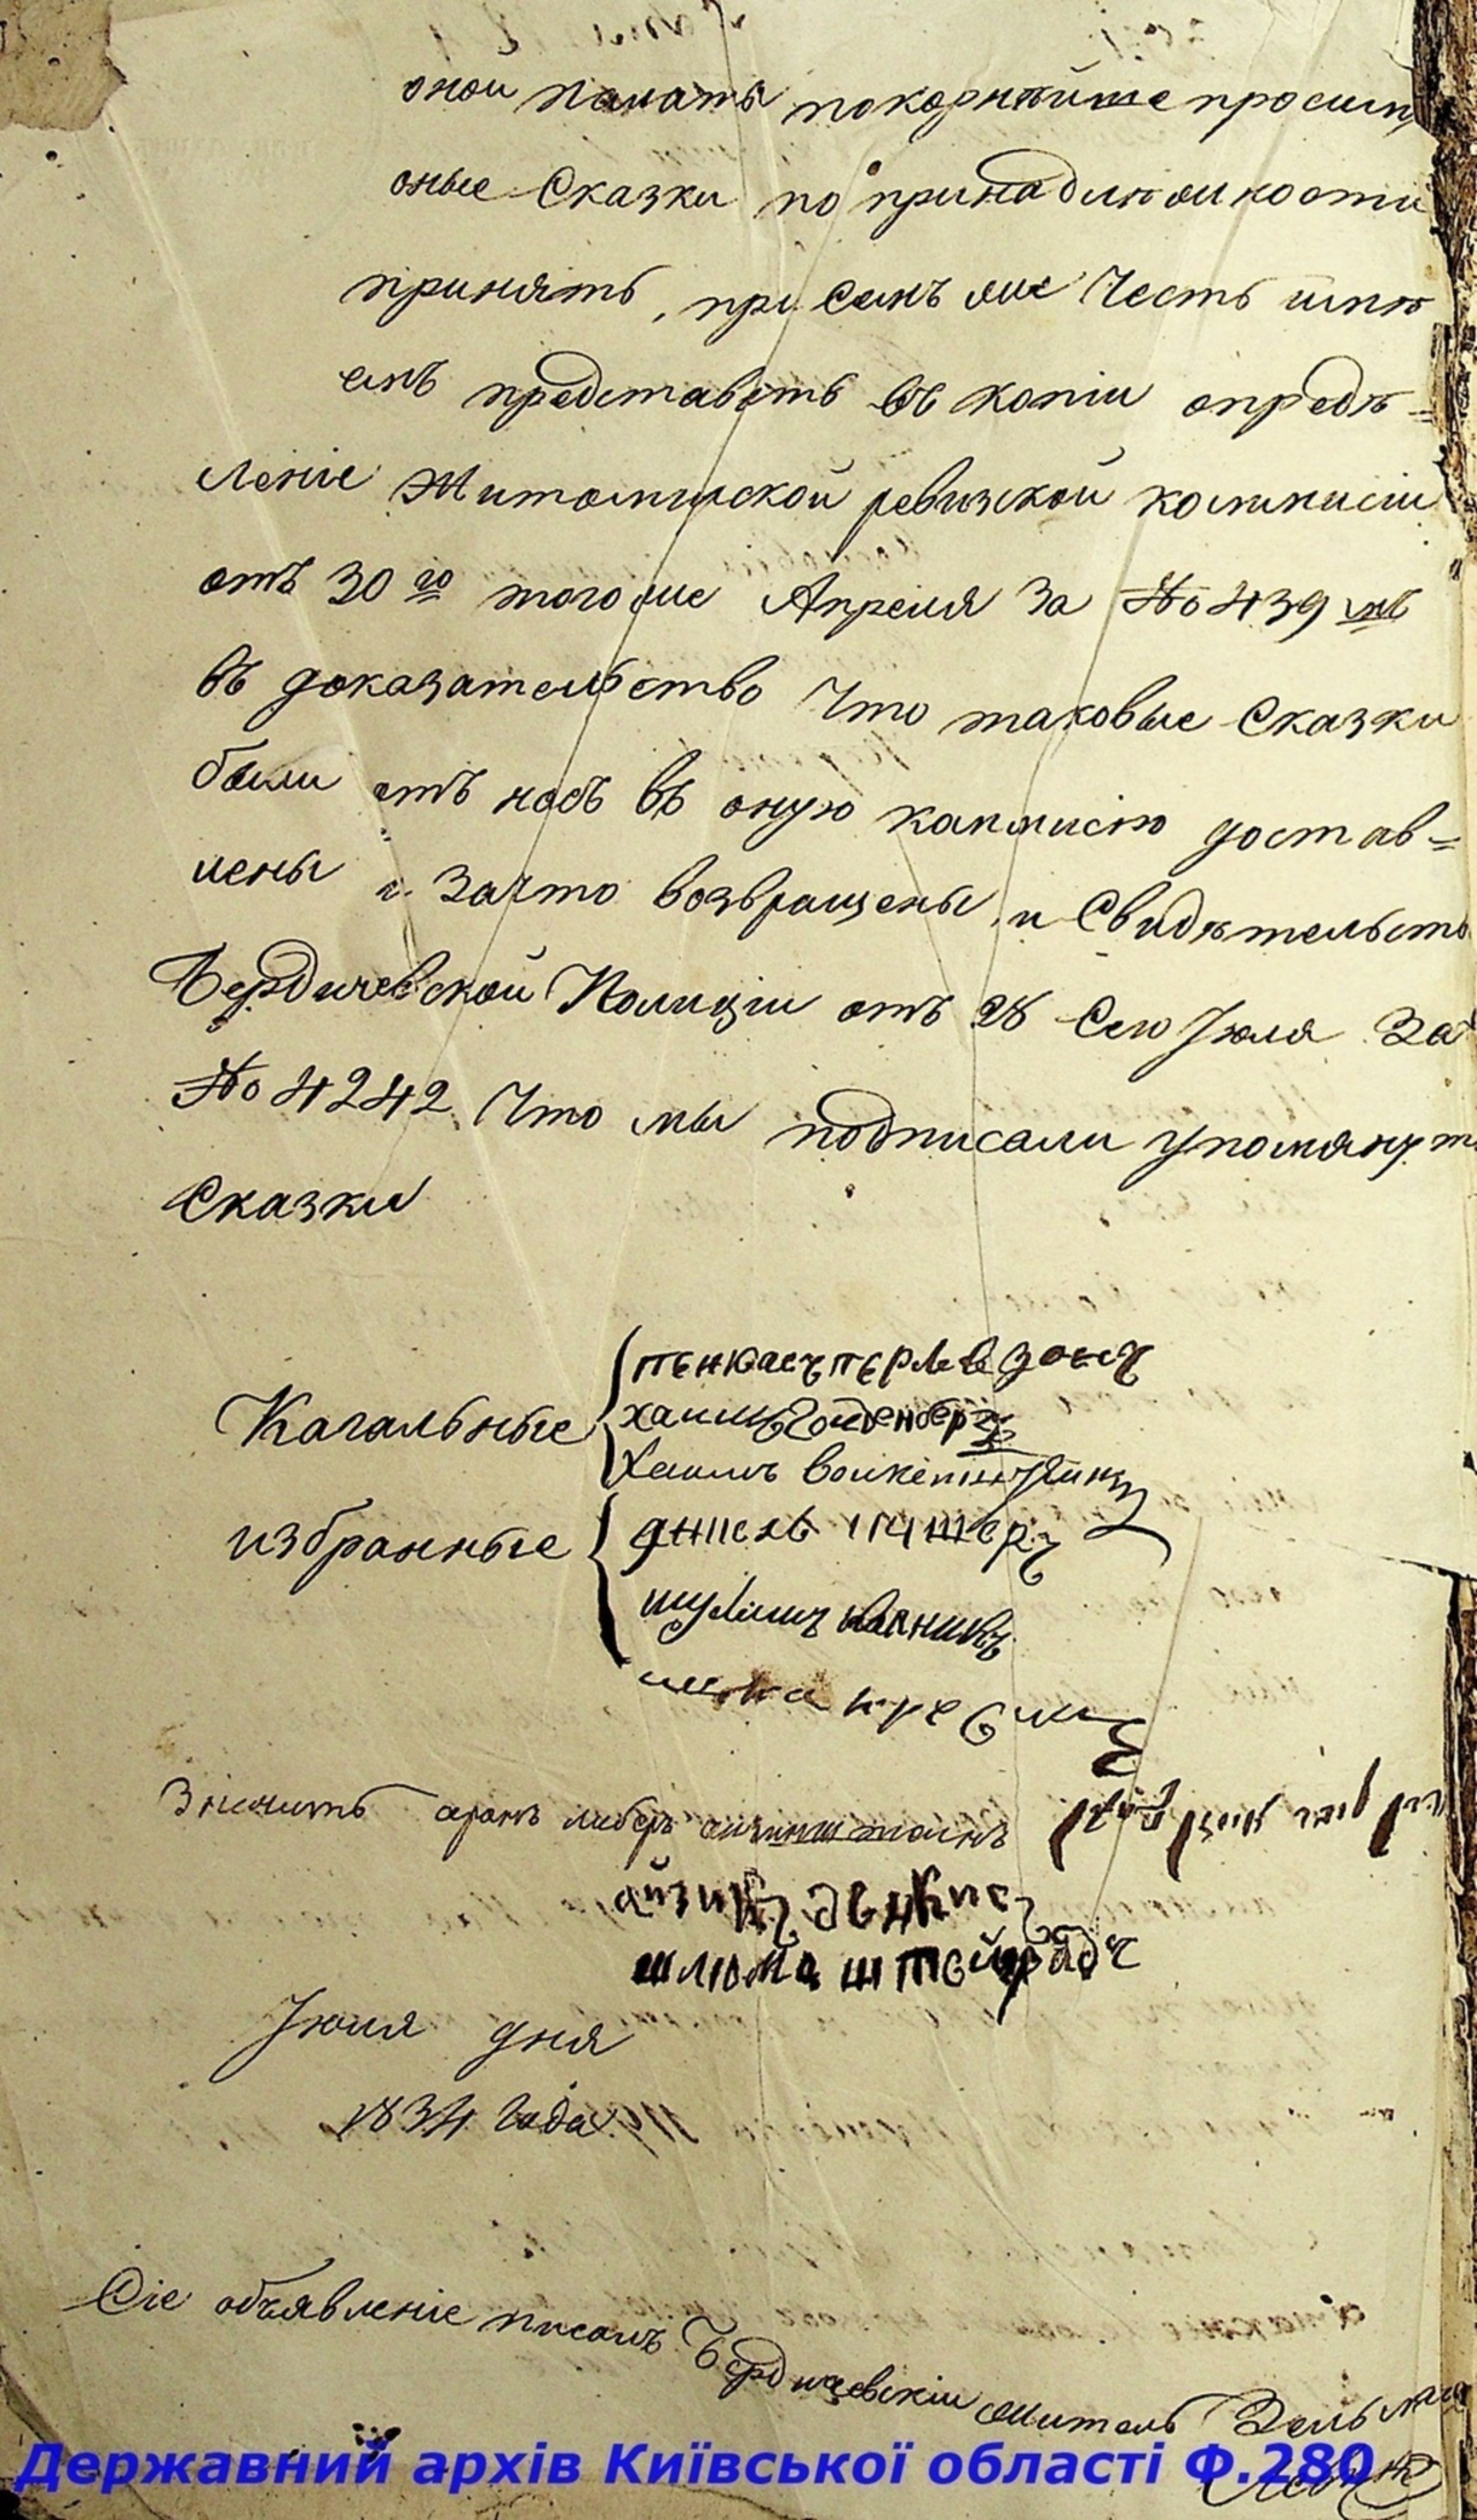 оной палаты покорнѣйше просимъ
оные Сказки по принадлѣжности
принять, при семъ же Честь имѣ
емъ представить въ копіи опредѣ=
леніе Житомирской ревизской коммисіи
отъ 30го того же Апреля За №439мъ
въ доказательство Что таковые Сказки
были отъ насъ въ оную коммисію достав=
лены и Зачто возвращены, и Свидѣтельство
Бердичевской Полиціи отъ 28 Сего Іюля За
№4242 Что мы подписали упомянут
Сказки
Кагальные
пенкасъ перлевзонъ
хаимъ Голденберг
Хаимъ
избранные
шулимъ
аронъ либеръ
айзикъ
шлома штейнрадъ
Іюля дня
1834 Года
Сіе объявленіе писалъ Бердичевскій житель Зельман
Державний архів Київської області Ф.280